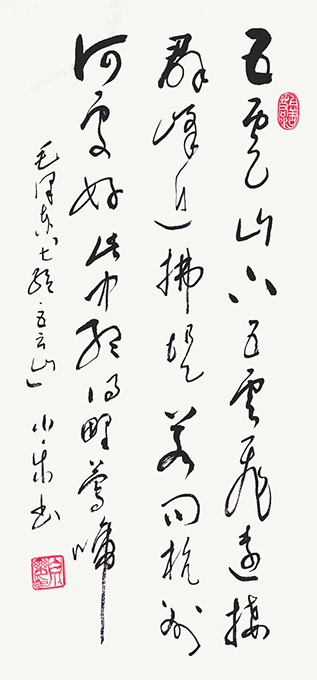 五雲山上五雲飛遠接
群峰近拂堤若问杭州
何處好此中聽得野莺啼
毛泽东"七绝·五云山" 小 书